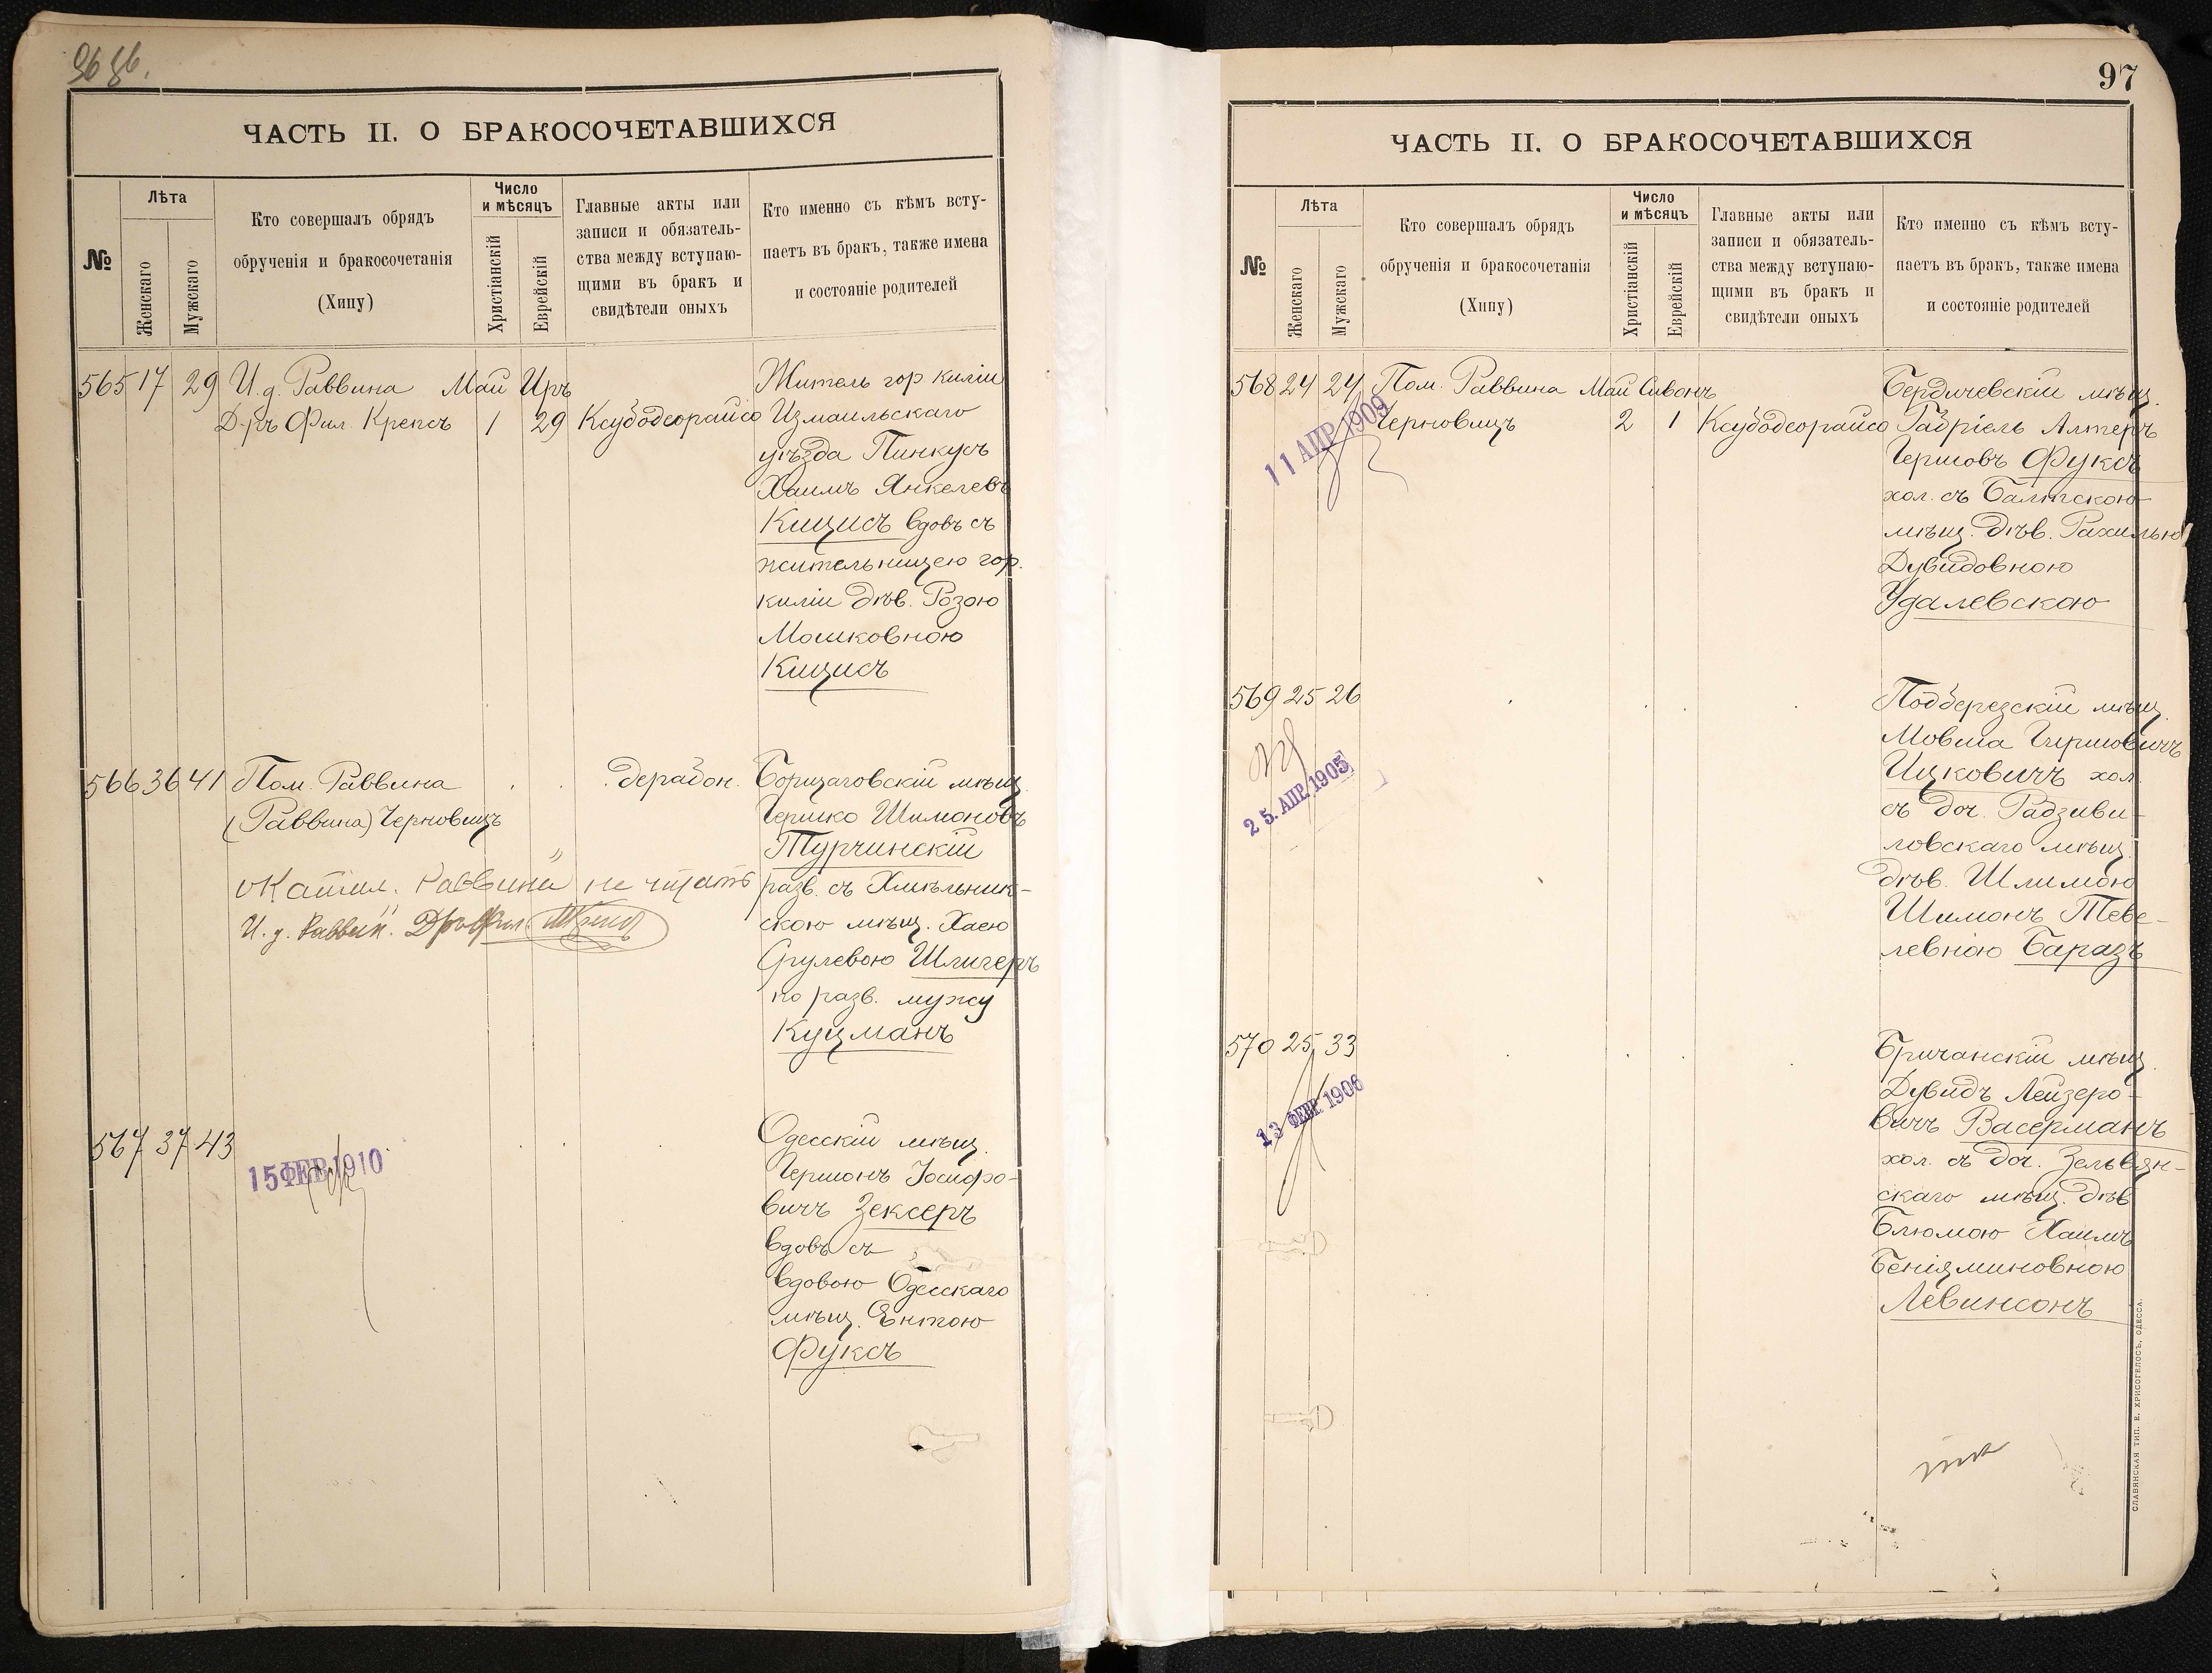 96 86.
ЧАСТЬ II. О БРАКОСОЧЕТАВШИХСЯ
№
Лѣта
Женскаго
Мужскаго
Кто совершалъ обрядъ
обрученія и бракосочетанія
(Хипу)
Число
и мѣсяцъ
Христіанскій
Еврейскій
Главные акты или
записи и обязатель-
ства между вступаю-
щими въ бракъ и
свидѣтели оныхъ
Кто именно съ кѣмъ всту-
паетъ въ бракъ, также имена
и состояніе родителей
565 17 29 И.д. Раввина Май Иръ
Д-ръ Фил. Крепсъ 1 29 Ксубодеорайсо
Житель гор киліи
Измаильскаго
уѣзда Пинкусъ
Хаимъ Янкелевъ
Кицисъ вдовъ съ
жительницею гор.
киліи дѣв. Розою
Мошковною
Кицисъ
566 36 41 Пом. Раввина . . . дерабон.
(Раввина) Черновицъ
Раввина не читать
И. д. Раввин.
Борщаговскій мѣщ.
Гершко Шимоновъ
Турчинскій
разв. съ Хмѣльник-
скою мѣщ. Хаею
Срулевою Шлигеръ
по разв. мужу
Куцманъ
567 37 43
15 ФЕВ 1910
Одесскій мѣщ.
Гершонъ Іосифо-
вичъ Зексеръ
вдовъ съ
вдовою Одесскаго
мѣщ. Ентою
Фуксъ
97
ЧАСТЬ II. О БРАКОСОЧЕТАВШИХСЯ
№
Лѣта
Женскаго
Мужскаго
Кто совершалъ обрядъ
обрученія и бракосочетанія
(Хипу)
Число
и мѣсяцъ
Христіанскій
Еврейскій
Главные акты или
записи и обязатель-
ства между вступаю-
щими въ бракъ и
свидѣтели оныхъ
Кто именно съ кѣмъ всту-
паетъ въ бракъ, также имена
и состояніе родителей
568 24 24 Пом. Раввина Май Сивонъ
Черновицъ 2 1 Ксубодеорайсо
11 АПР 1909
Бердичевскій мѣщ.
Габріель Алтеръ
Гершовъ Фуксъ
хол. съ Балтскою
мѣщ. дѣв. Рахилью
Дувидовною
Удалевскою
569 25 26
25. АПР. 1905
Подберезскій мѣщ.
Мовша Гиршовичъ
Ицковичъ хол.
съ доч. Радзиви-
ловскаго мѣщ.
дѣв. Шлимою
Шимонъ Теве-
левною Баразъ
570 25 33
13 ФЕВР. 1906
Бричанскій мѣщ.
Дувидъ Лейзеро-
вичъ Васерманъ
хол. съ доч. Зельвян-
скаго мѣщ. дѣв
Блюмою Хаимъ
Беніяминовною
Левинсонъ
СЛАВЯНСКАЯ ТИП. Е. ХРИСОГЕЛОСЪ, ОДЕССА.